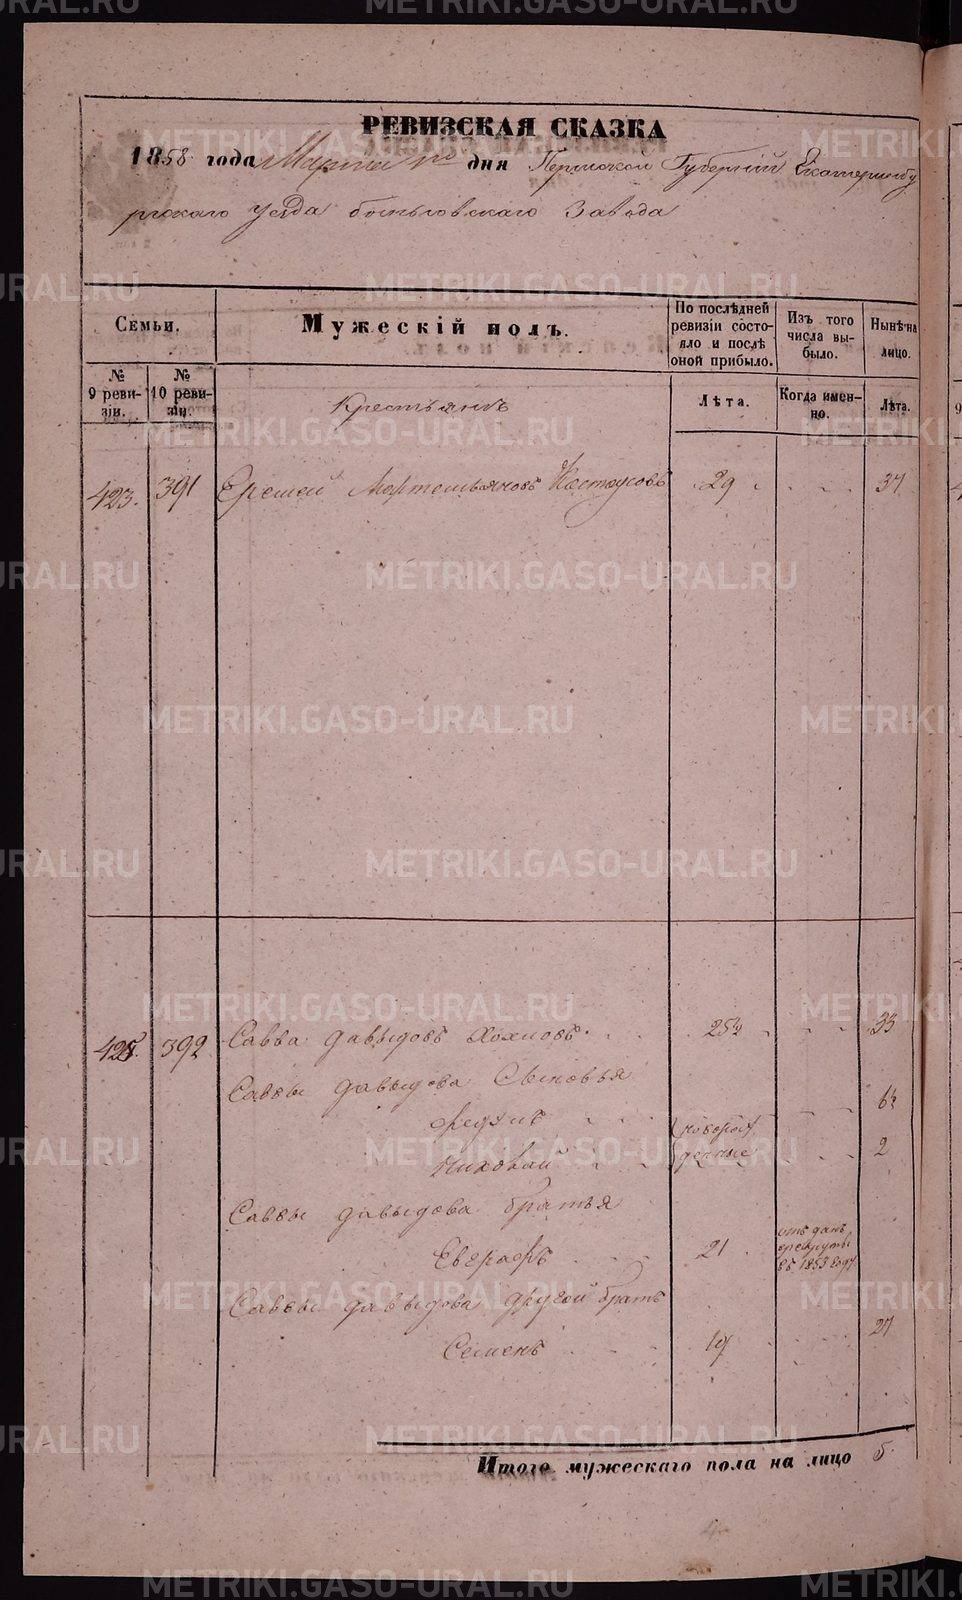 РЕВИЗСКАЯ СКАЗКА
1858 года Марта дня Пермской Губернiи Екатеринбу
ргскаго уезда завода
Семьи.
Мужескiй полъ.
По послѣдней ревизiи состояло и послѣ оной прибыло.
Изъ того числа выбыло.
Нынѣ на лицо.
№ 9 ревизiи.
№ 10 ревизiи.
Лѣта.
Когда именно.
Лѣта.
Крестьянъ
423. 391 Мартемьяновъ 29 37
392 Савва Давыдовъ 25½ 33
Саввы Давыдова Сыновья
6½
Николай 2
новорож
денные
Саввы Давыдова братья
Евграфъ 21 отъ данъ
въ рекруты
въ 1853 году
Саввы Давыдова другой братъ
Семенъ 19 27
Итого мужескаго пола на лицо 5.
METRIKI.GASO-URAL.RU